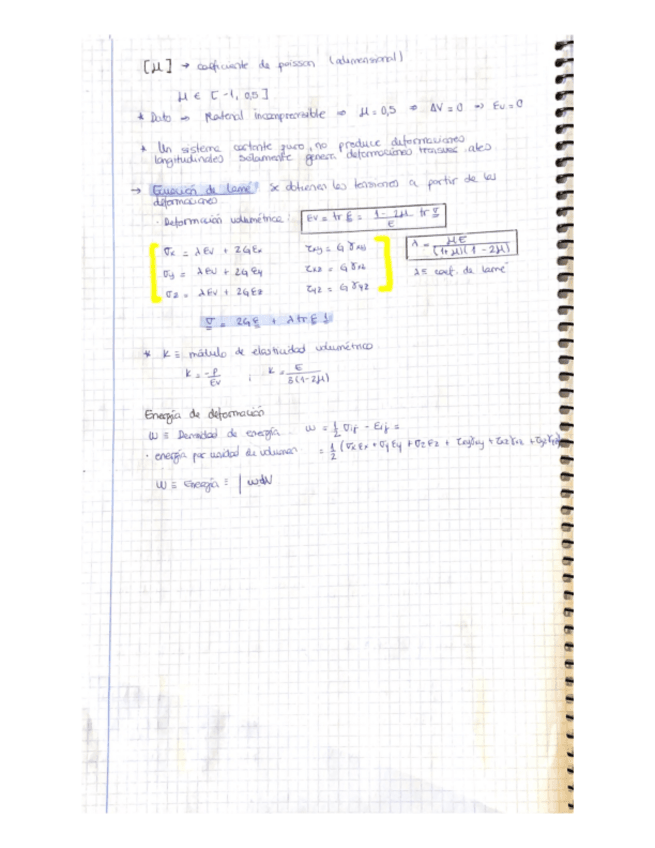 [μ] → coeficiente de poisson (adimensional)
μ ∈ [-1, 0,5]
* Dato ⇒ Material incompresible ⇒ μ = 0,5 ⇒ ΔV = 0 ⇒ Ev = 0
* Un sistema cortante puro, no produce deformaciones
longitudinales solamente genera deformaciones transversales
→ Ecuación de Lamé Se obtienen las tensiones a partir de las
deformaciones
· Deformación volumétrica: Ev = tr ε = (1 - 2μ)/E tr σ
σx = λEv + 2Gεx τxy = Gγxy λ = μE/((1+μ)(1-2μ))
σy = λEv + 2Gεy τxz = Gγxz λ ≡ coef. de Lamé
σz = λEv + 2Gεz τyz = Gγyz
σ = 2Gε + λ tr ε 1
* K ≡ módulo de elasticidad volumétrico
K = -P/Ev ; K = E/(3(1-2μ))
Energía de deformación
W ≡ Densidad de energía W = 1/2 σij - εij =
· energía por unidad de volumen = 1/2 (σxεx + σyεy + σzεz + τxyγxy + τxzγxz + τyzγyz)
W ≡ Energía = ∫ wdV